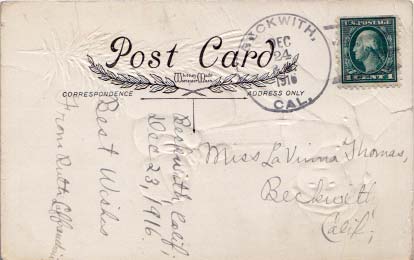 Post Card
CORRESPONDENCE
ADDRESS ONLY
BECKWITH,
DEC
24
1916
CAL.
U.S. POSTAGE
1 CENT 1
Beckwith Calif;
Dec 23, 1916.
Best Wishes
From Ruth
Miss LaVinna Thomas,
Beckwith
Calif;